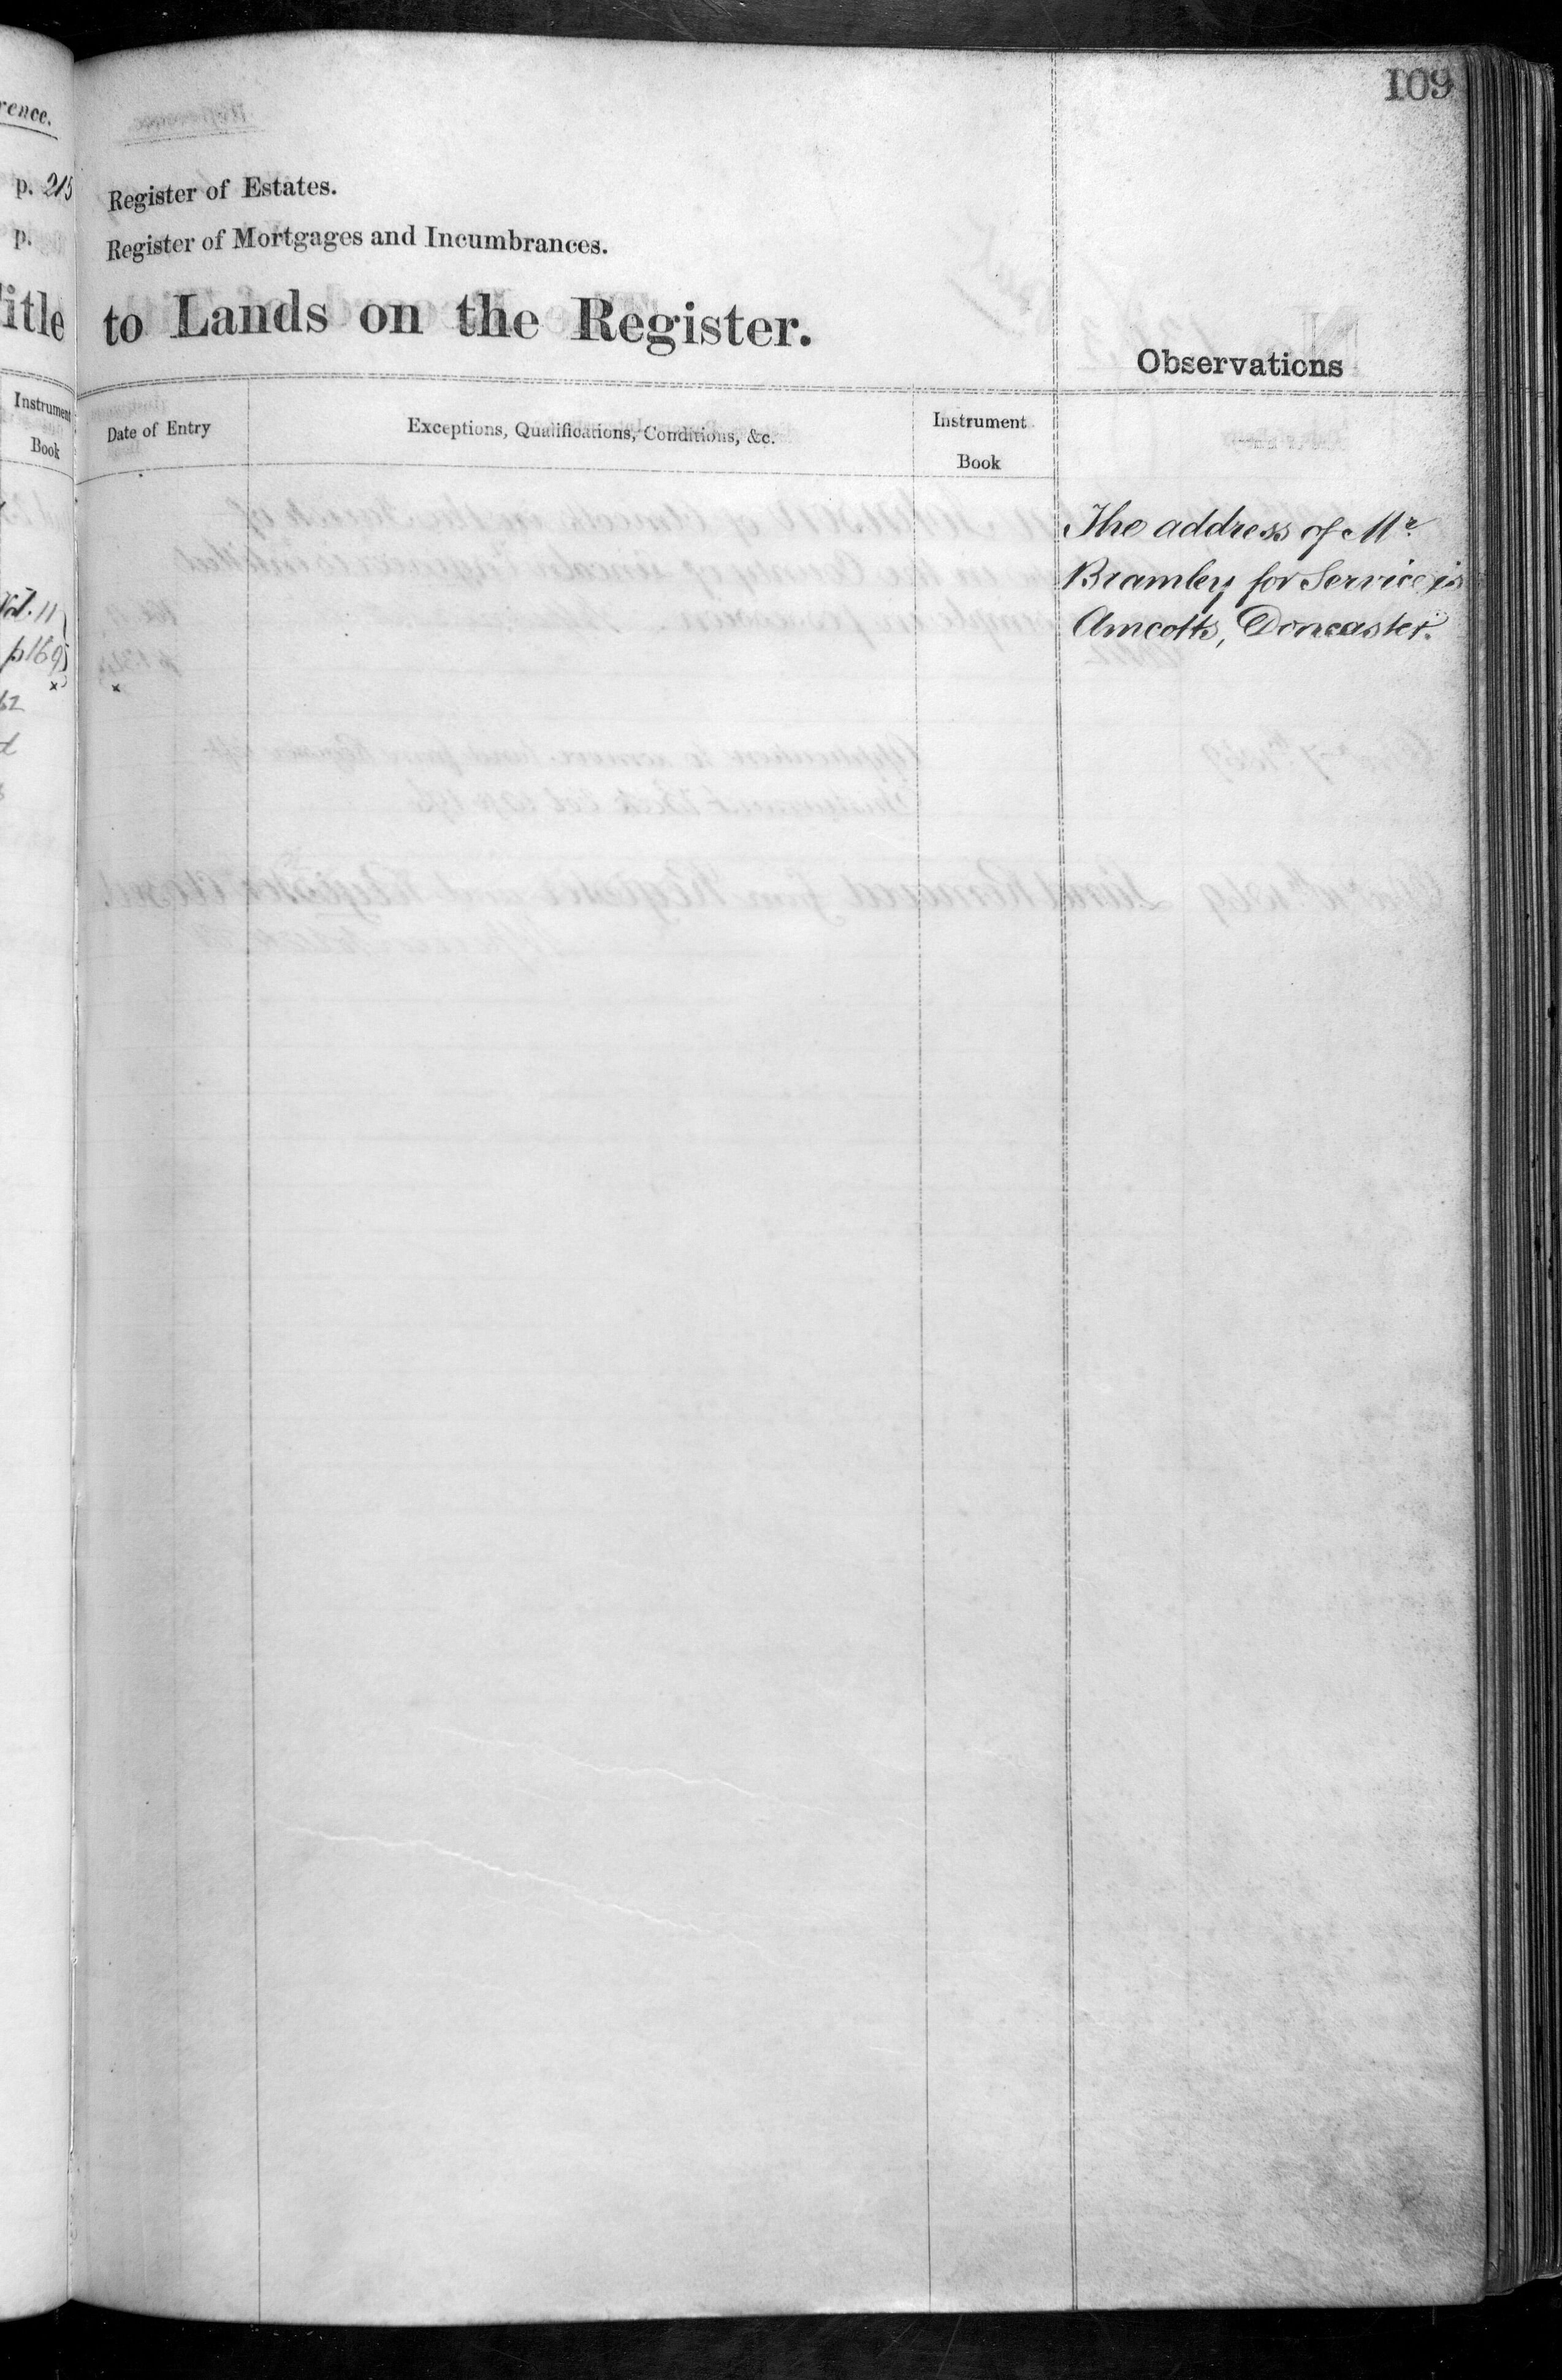 109
rence.
p. 215
p.
itle
Instrument
Book
Vol. 11
p 169
x
62
Register of Estates.
Register of Mortgages and Incumbrances.
to Lands on the Register.
Observations
Date of Entry
Exceptions, Qualifications, Conditions, &c.
Instrument
Book
x
The address of Mr
Bramley for Service is
Amcotts, Doncaster.